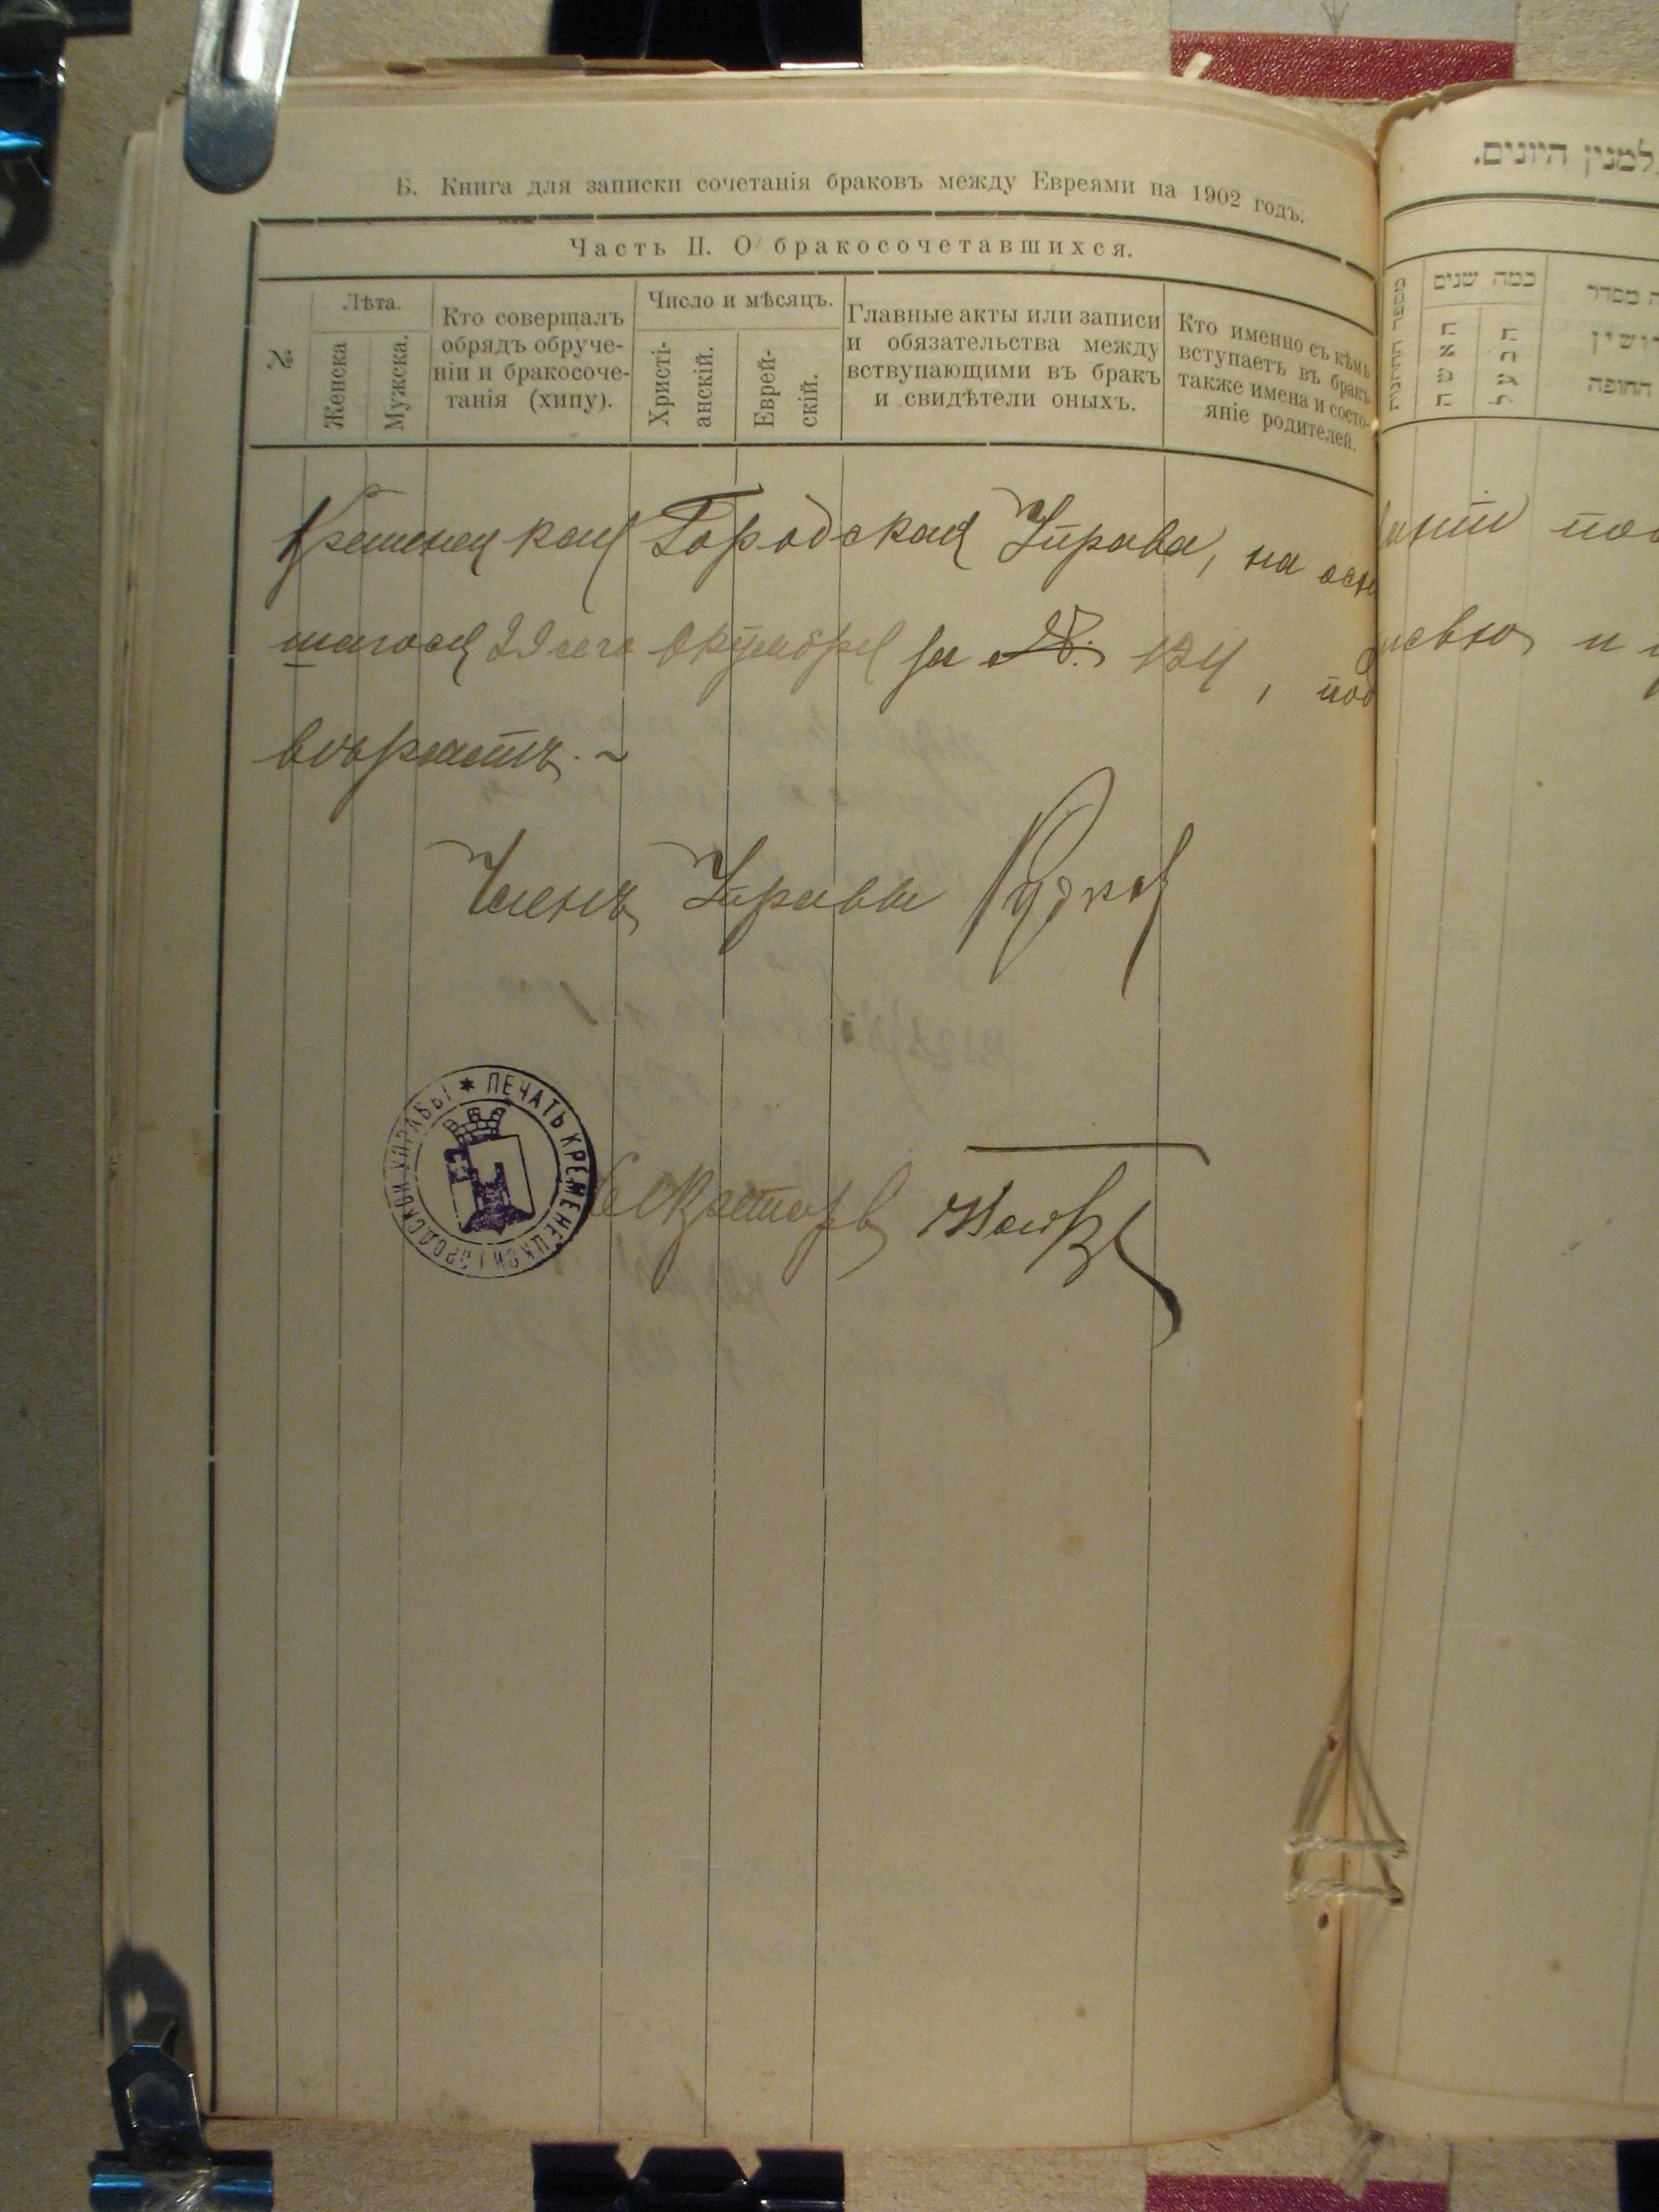 Б. Книга для записки сочетанія браковъ между Евреями на 1902 годъ.
Часть II. О бракосочетавшихся.
№
Лѣта.
Женска
Мужска.
Кто совершалъ
обрядъ обруче-
ніи и бракосоче-
танія (хипу).
Число и мѣсяцъ.
Христі-
анскій.
Еврей-
скій.
Главные акты или записи
и обязательства между
вствупающими въ бракъ
и свидѣтели оныхъ.
Кто именно съ кѣмъ
вступаетъ въ бракъ
также имена и состо-
яніе родителей.
Кременецкая Городская Управа, на осно
шагося 29 сего Октября за №. 124, под
возрастъ.
Членъ Управы
ПЕЧАТЬ КРЕМЕНЕЦКОЙ ГОРОДСКОЙ УПРАВЫ
Секретарь
למנין היונים.
מספר החתונות
כמה שנים
האשה
הגבר
מסדר
החופה